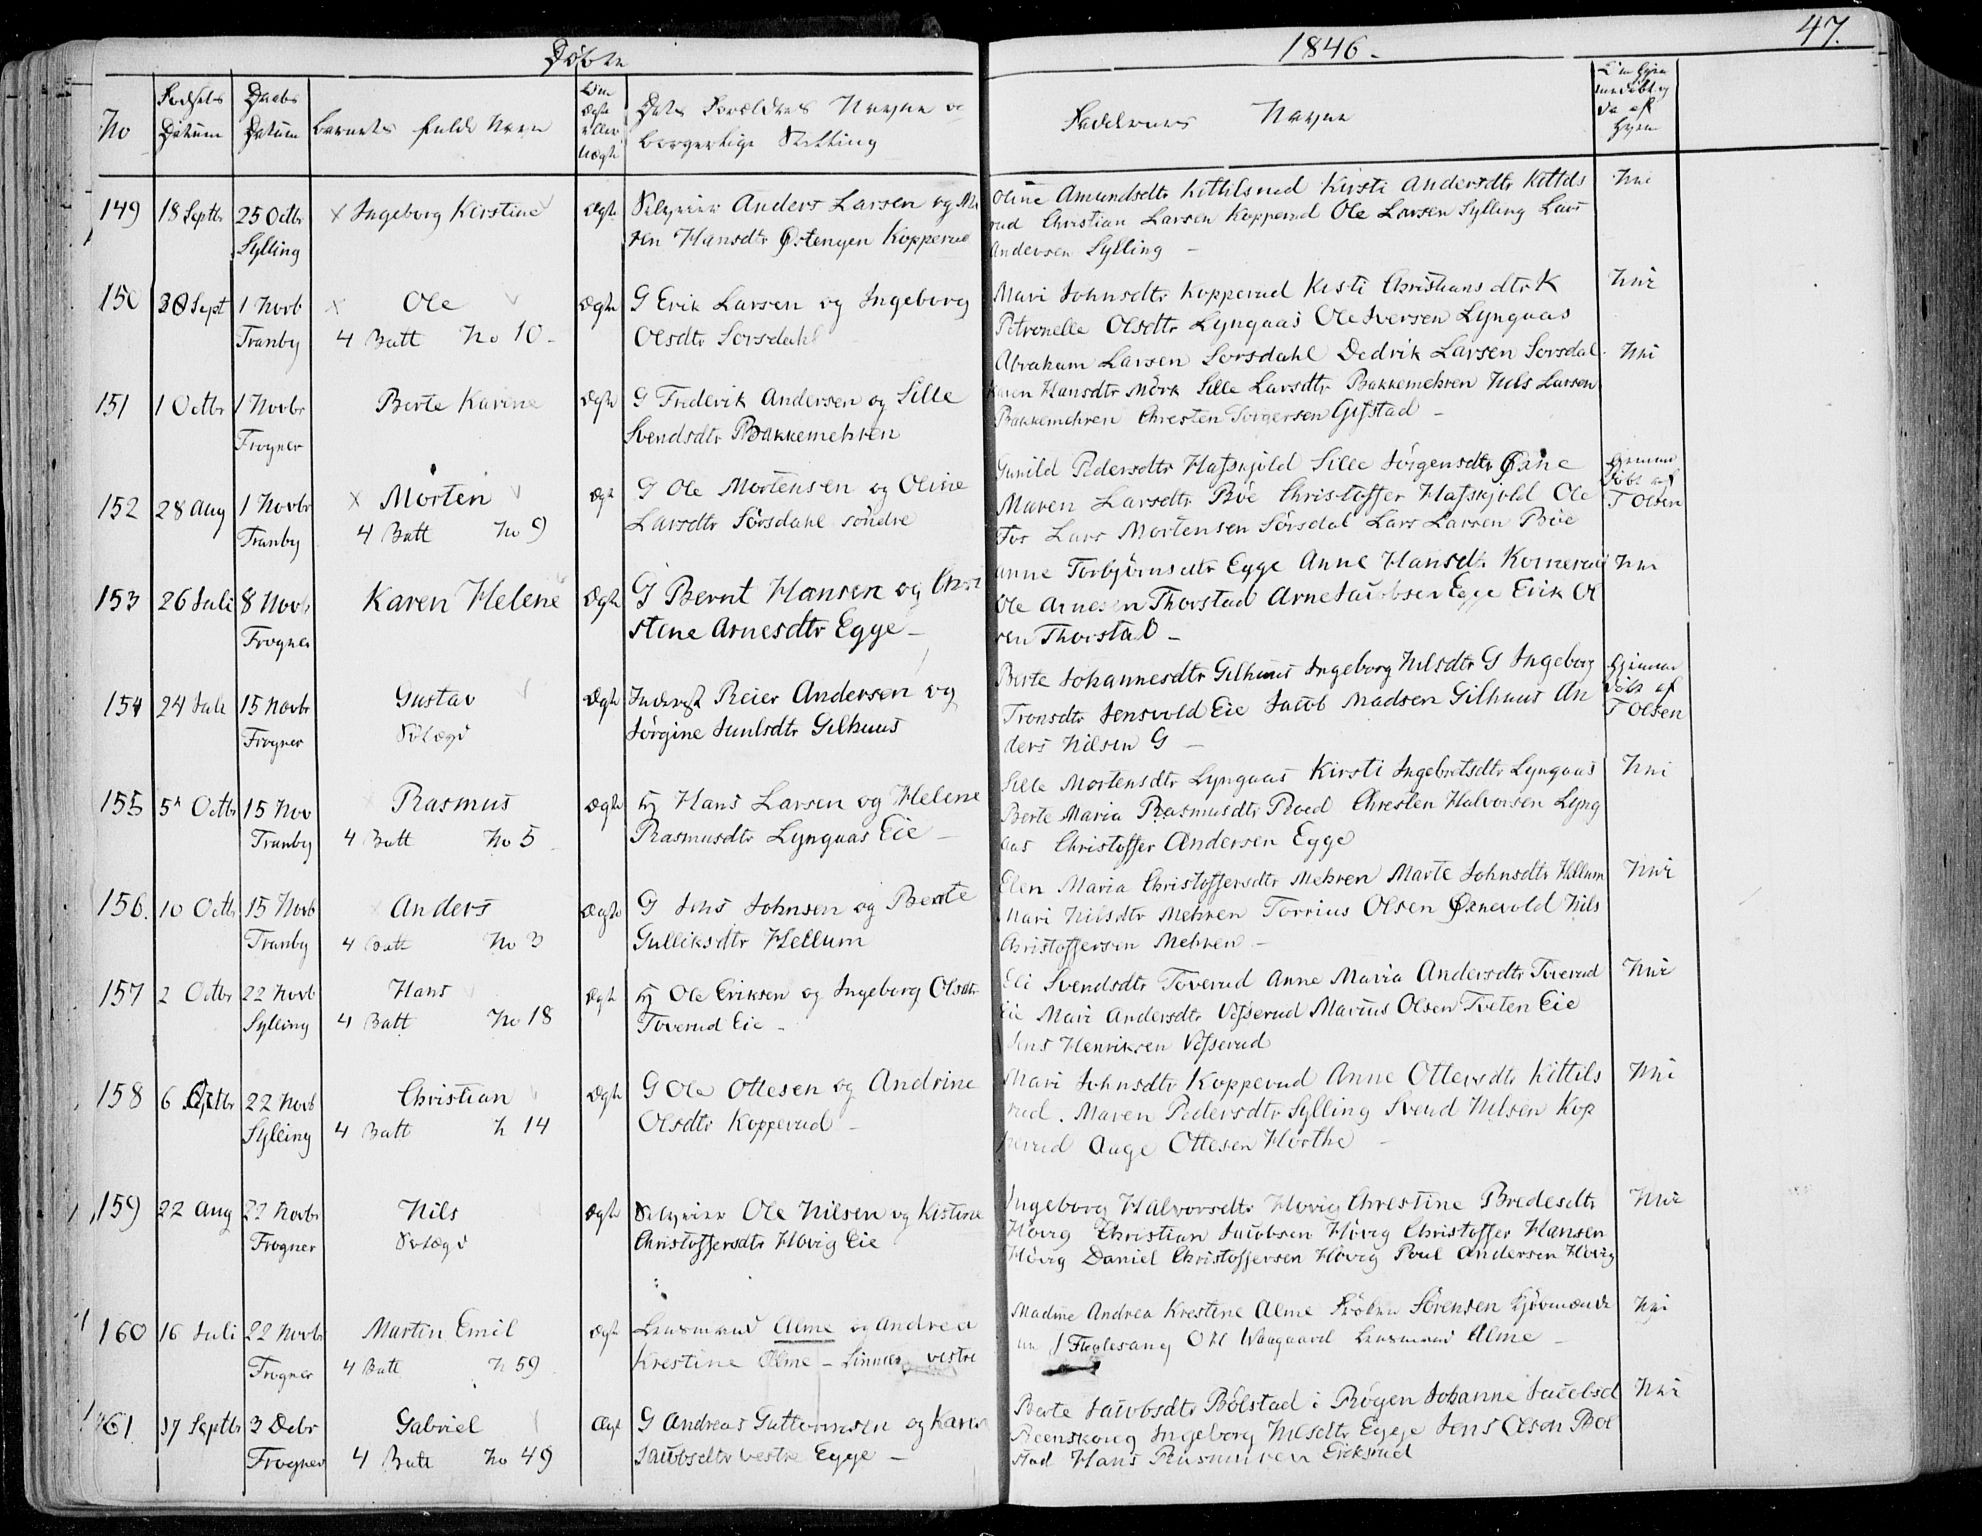 Døbte
1846.
47.
No
Fødsels Datum
Daabs Datum
Barnets fulde Navn
Om Ægte eller Uægte
Dets Forældres Navne og
borgerlige Stilling
Faddernes Navne
149 18 Septbr 25 Octbr Ingeborg Kirstine Ægte Selveier Anders Larsen og Ma
Sylling
ren Hansdtr Østengen Kopperud
Oline Amundsdtr Kittilsrud Kirsti Andersdtr Kittels Nei
rud Christian Larsen Kopperud Ole Larsen Sylling Lars
Andersen Sylling
150 30 Sept 1 Novb Ole Ægte G Erik Larsen og Ingeborg
Tranby 4 Batt No 10 Olsdtr Sorsdahl
Mari Johnsdtr Kopperud Kisti Christiansdtr K Nei
Petronelle Olsdtr Lyngaas Ole Iversen Lyngaas
Abraham Larsen Sorsdahl Dedrik Larsen Sorsdal Nei
151 1 Octbr 1 Novbr Berte Karine Ægte G Frederik Andersen og Sille
Frogner Svendsdtr Bakkemehren
Karen Hansdtr Mörk Sille Larsdtr Bakkemehren Nils Larsen
Bakkemehren Chresten Torgersen Gifstad
152 28 Aug 1 Novbr Morten Ægte G Ole Mortensen og Oline
Tranby 4 Batt No 9 Larsdtr Sørsdahl söndre
Gunild Pedersdtr Hafskjold Sille Jörgensdtr Hjemme
Maren Larsdtr Böe Christoffer Hafskjold Ole døbt af
Fos Lars Mortensen Sørsdal Lars Larsen Böe T Olsen
153 26 Juli 8 Novb Karen Helene Ægte G Bernt Hansen og Chri
Frogner stine Arnesdtr Egge
Anne Torbjørnsdtr Egge Anne Hansdtr Nei
Ole Arnesen Thorstad Arne Jacobsen Egge Erik Ol
sen Thorstad
154 24 Juli 15 Novbr Gustav Ægte Inderst Reier Andersen og
Frogner Jørgine Gilhuus
Berte Johannesdtr Gilhuus Ingeborg Nilsdtr G Ingeborg Hjemme
Tronsdtr Jensvold Eie Jacob Madsen Gilhuus An døbt af
ders Nilsen G T Olsen
155 5 Octbr 15 Nov Rasmus Ægte Hans Larsen og Helene
Tranby 4 Batt No 5 Rasmusdtr Lyngaas Eie
Sille Mortensdtr Lyngaas Kirsti Ingebretsdtr Lyngaas Nei
Berte Maria Rasmusdtr Roed Chresten Halvorsen Lyng
aas Christoffer Andersen Egge
156. 10 Octbr 15 Novb Anders Ægte G Jens Johnsen og Berte
Tranby 4 Batt No 3 Gulliksdtr Hellum
Elen Maria Christoffersdtr Mehren Marte Johnsdtr Hellum Nei
Mari Nilsdtr Mehren Torrius Olsen Ørnevold Nils
Christoffersen Mehren
157 2 Octbr 22 Novb Hans Ægte Ole Eriksen og Ingeborg Olsdtr
Sylling 4 Batt No 18 Toverud Eie
Svendsdtr Toverud Anne Maria Andersdtr Toverud Nei
Eie Mari Andersdtr Vesserud Marius Olsen Tveten Eie
Jens Henriksen Vesserud
158 6 22 Novb Christian Ægte G Ole Ottesen og Andrine
Sylling 4 Batt N 14 Olsdtr Kopperud
Mari Johnsdtr Kopperud Anne Ottersdtr Kittils Nei
rud. Maren Pedersdtr Sylling Svend Nilsen Kop
perud Auge Ottesen Horthe
159 22 Aug 22 Novbr Nils Ægte Selveier Ole Nilsen og Kistine
Frogner Christoffersdtr Hovig Eie
Ingeborg Halvorsdtr Hovig Chrestine Bredesdtr Nei
Hövig Christian Jacobsen Hövig Christoffer Hansen
Hövig Daniel Christoffersen Hövig Poul Andersen Hövig
160 16 Juli 22 Novbr Martin Emil Ægte Lensmand Alme og Andrea
Frogner 4 Batt N 59 Krestine Alme Linnes vestre
Madme Andrea Krestine Alme Frøken Sörensen Nei
Waagaard Lensmand Alme
161. 17 Septbr 3 Debr Gabriel Ægt G Andreas Guttormsen og Karen
Frogner 4 Batt No 49 Jacobsdtr vestre Egge
Berte Jacobsdtr Bölstad i Røgen Johanne Jacobsd Nei
Reenskoug Ingeborg Nilsdtr Egge Jens Olsen Böl
stad Hans Rasmussen Eeksrud